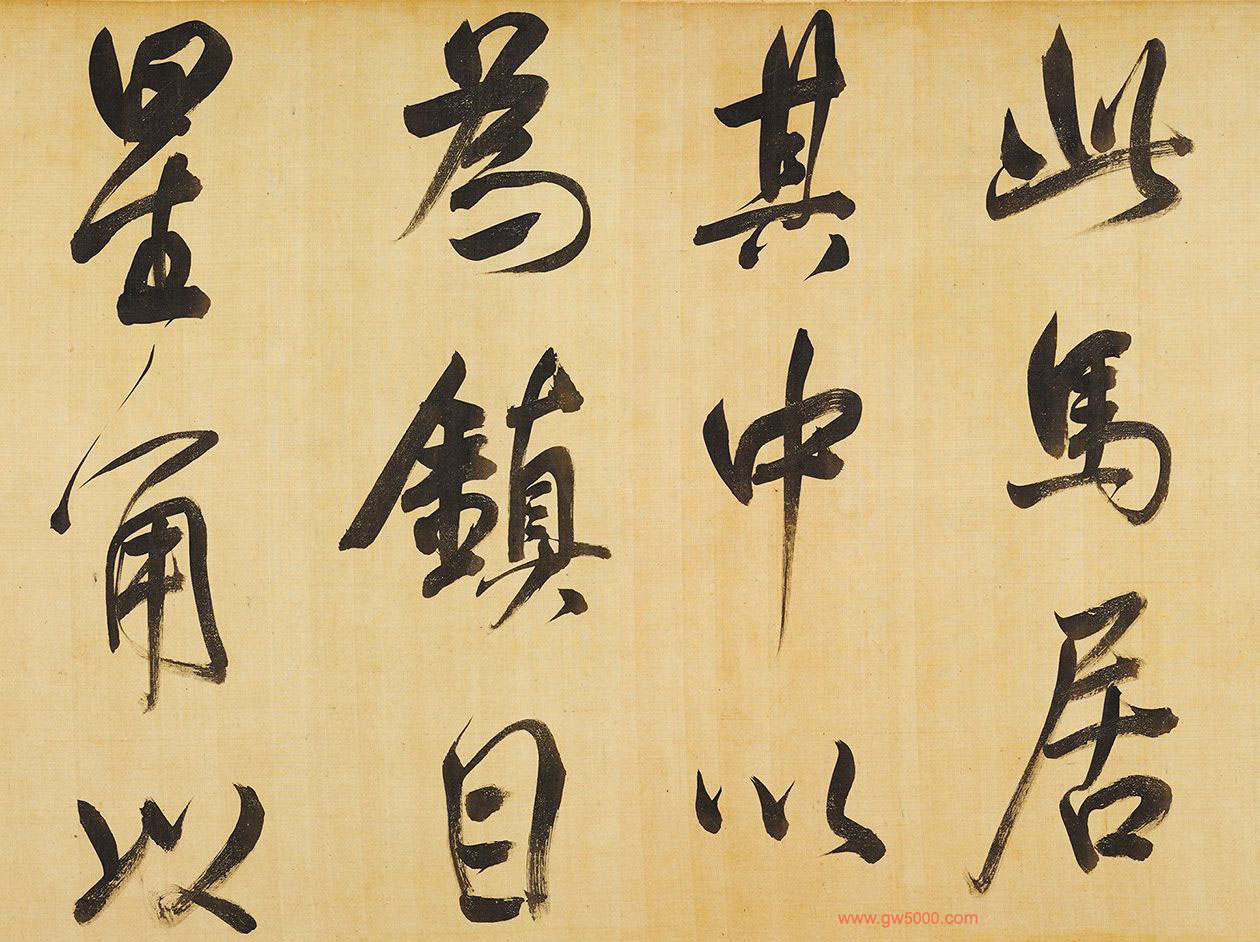 此馬居
其中以
為鎮目
星角以
www.gw5000.com